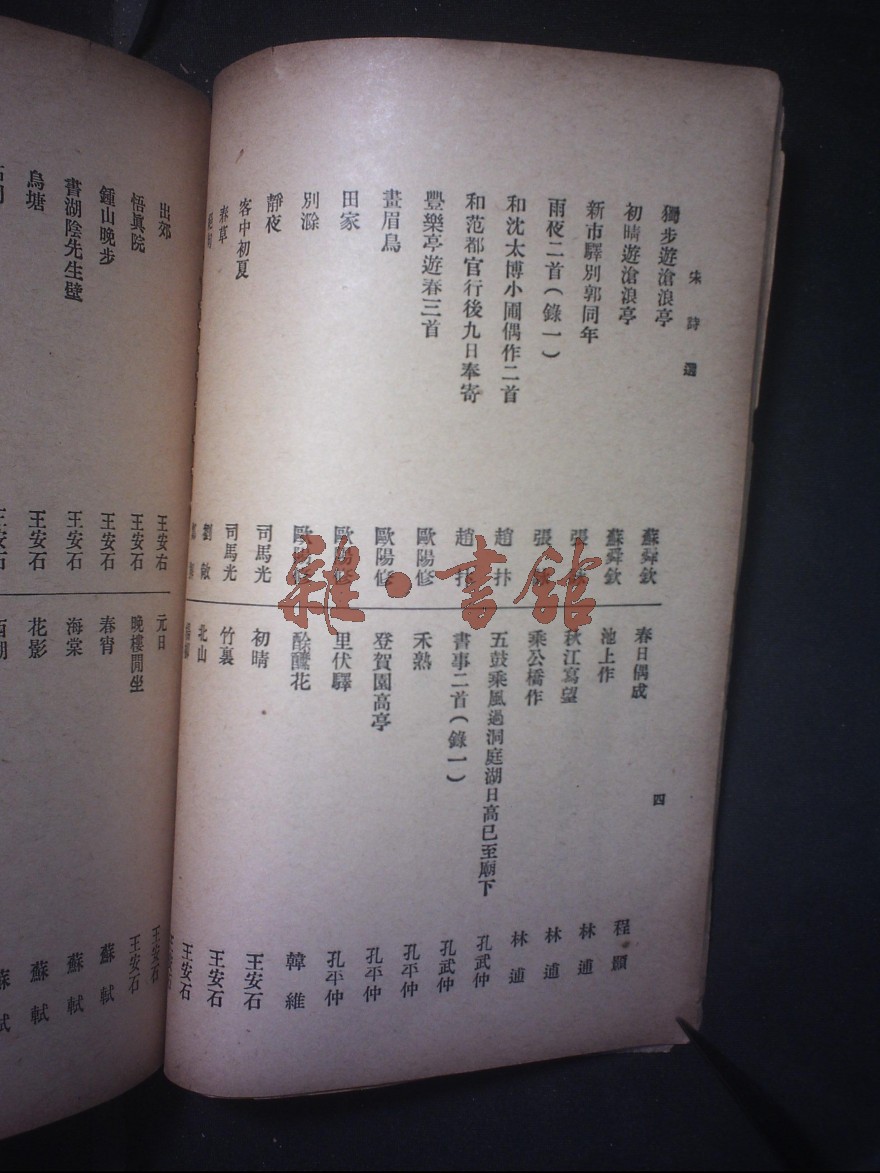 宋詩選
四
獨步遊滄浪亭 蘇舜欽
初晴遊滄浪亭 蘇舜欽
新市驛別郭同年 張
雨夜二首(錄一) 張
和沈太博小圃偶作二首 趙抃
和范都官行後九日奉寄 趙抃
豐樂亭遊春三首 歐陽修
畫眉鳥 歐陽修
田家 歐陽修
別滁 歐陽修
靜夜 司馬光
客中初夏 司馬光
春草 劉敞
春日偶成 程顥
池上作 林逋
秋江寫望 林逋
乘公橋作 林逋
五鼓乘風過洞庭湖日高已至廟下 孔武仲
書事二首(錄一) 孔武仲
禾熟 孔平仲
登賀園高亭 孔平仲
里伏驛 孔平仲
酴醾花 韓維
初晴 王安石
竹裏 王安石
北山 王安石
出郊 王安右
悟眞院 王安石
鍾山晚步 王安石
書湖陰先生壁 王安石
烏塘 王安石
王安石
元日 王安石
晚樓閒坐 王安石
春宵 蘇軾
海棠 蘇軾
花影 蘇軾
蘇軾
雜·書館